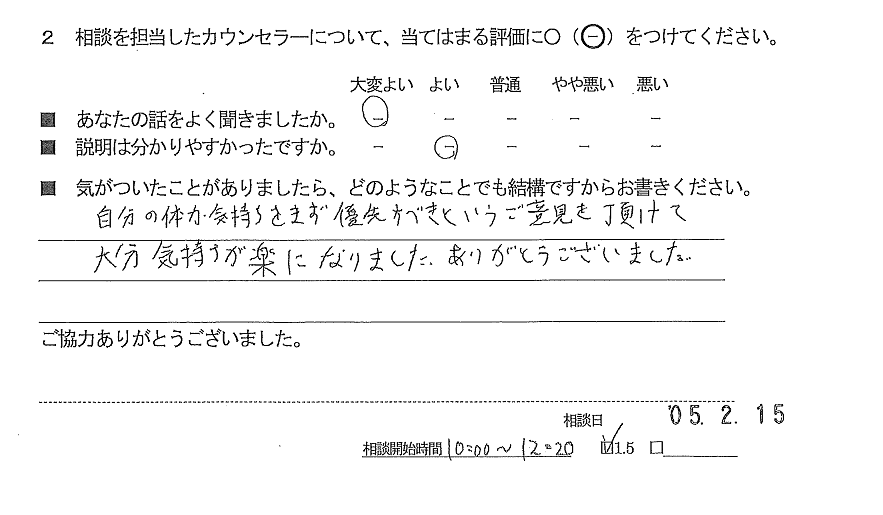 2 相談を担当したカウンセラーについて、当てはまる評価に○(㊀)をつけてください。
大変よい よい 普通 やや悪い 悪い
■ あなたの話をよく聞きましたか。 － － － － －
■ 説明は分かりやすかったですか。 － － － － －
■ 気がついたことがありましたら、どのようなことでも結構ですからお書きください。
自分の体か気持ちをまず優先すべきというご意見を頂けて
大分気持ちが楽になりました。ありがとうございました。
ご協力ありがとうございました。
相談日 '05. 2. 15
相談開始時間 10:00～12:20 ☑1.5 □